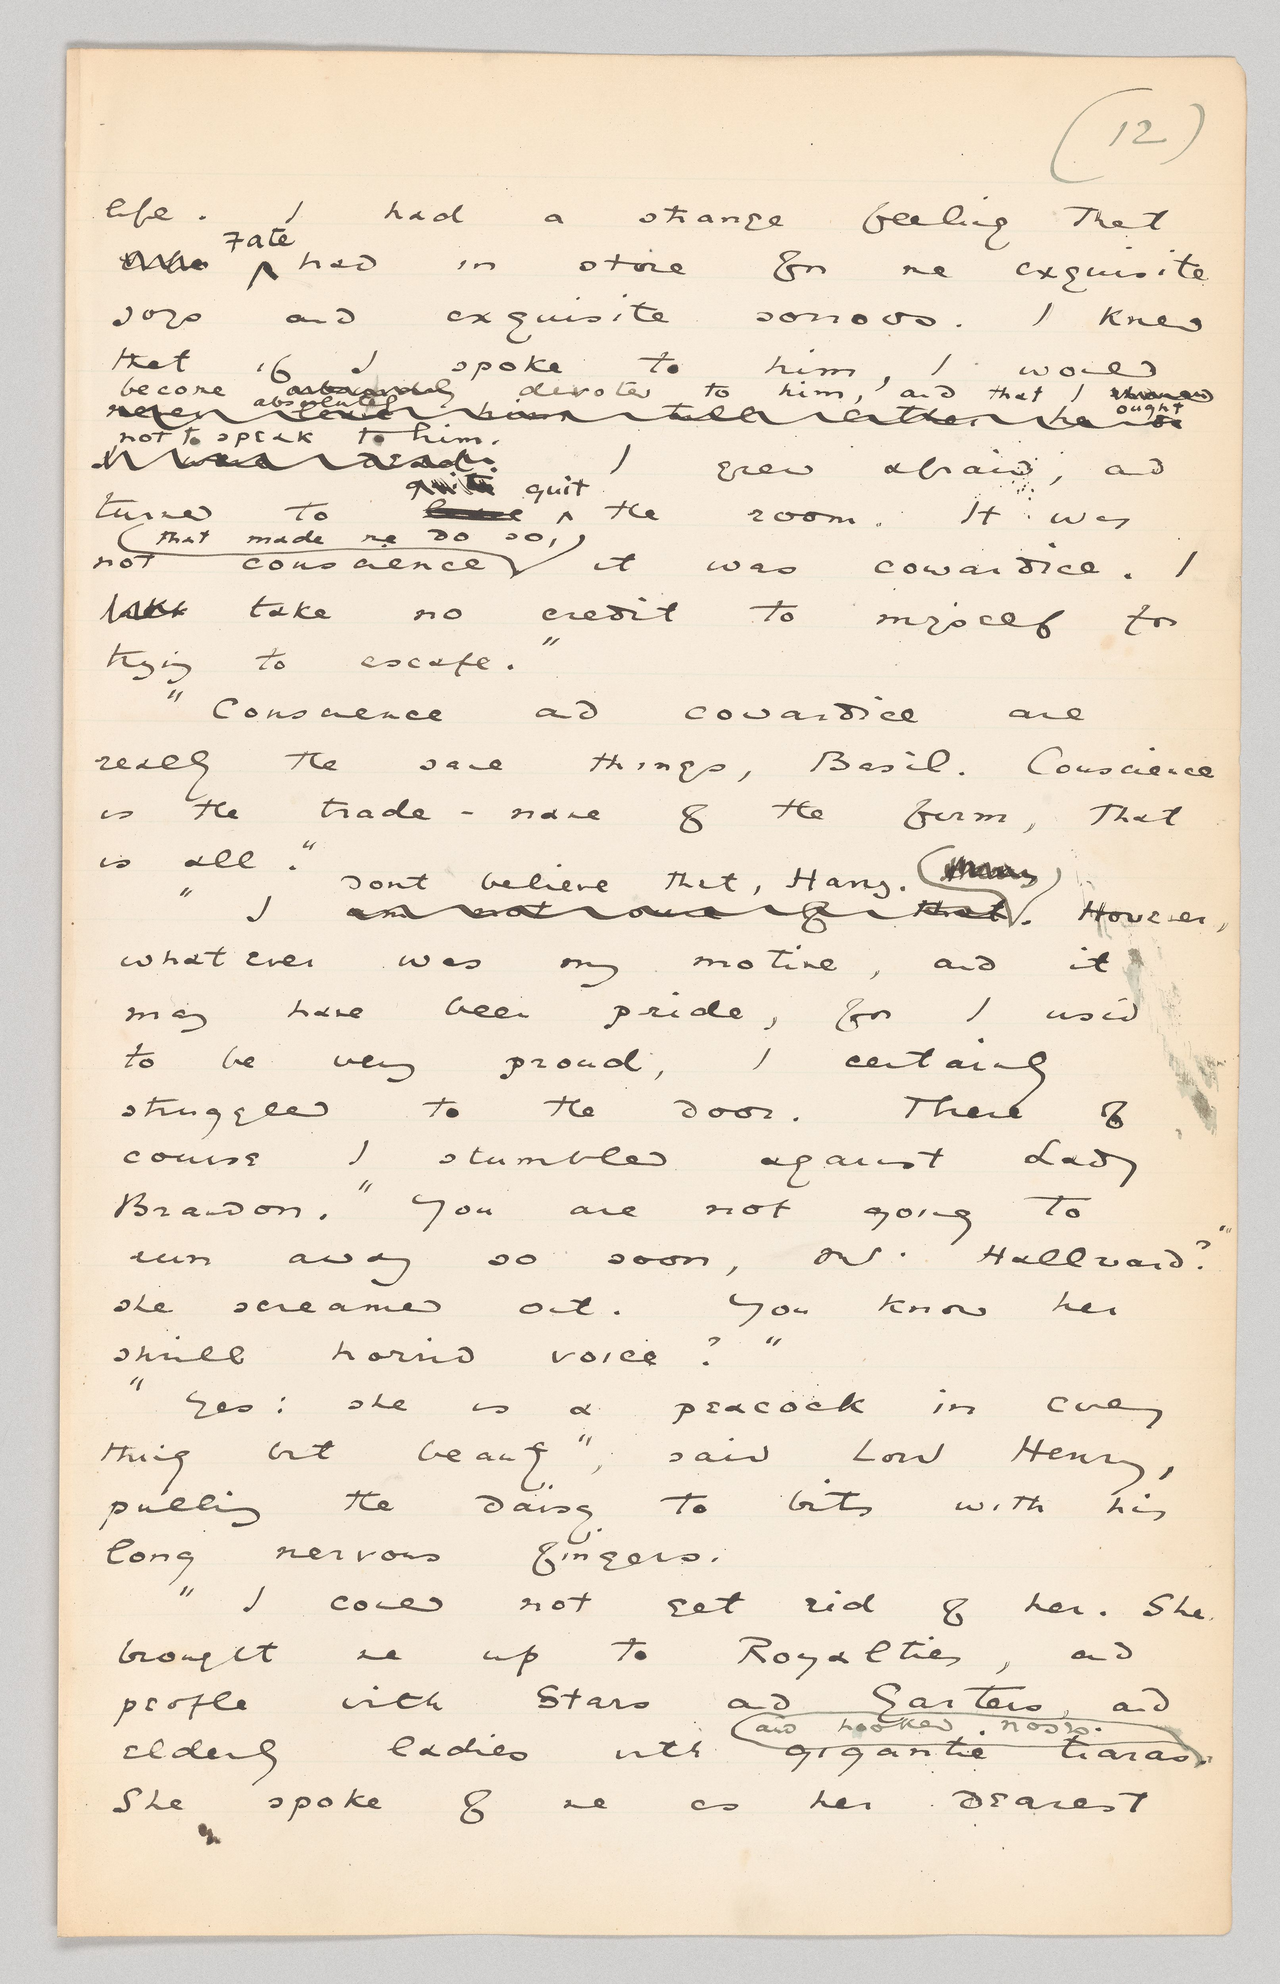 (12)
life. I had a strange feeling that
Fate
had in store for me exquisite
joys and exquisite sorrows. I knew
that if I spoke to him, I would
become absolutely devoted to him, and that I should
absolutely ought
never leave him till either he or
not to speak to him.
I were dead. I grew afraid, and
quite quit
turned to leave the room. It was
that made me do so,
not conscience it was cowardice. I
take no credit to myself for
trying to escape."
"Conscience and cowardice are
really the same things, Basil. Conscience
is the trade-name of the firm, that
is all."
don't believe that, Harry.
"I am not sure of that. However,
whatever was my motive, and it
may have been pride, for I used
to be very proud, I certainly
struggled to the door. There of
course I stumbled against Lady
Brandon. "You are not going to
run away so soon, Mr. Hallward?"
she screamed out. You know her
shrill horrid voice?"
"Yes: she is a peacock in every
thing but beauty", said Lord Henry,
pulling the daisy to bits with his
long nervous fingers.
"I could not get rid of her. She
brought me up to Royalties, and
people with Stars and Garters, and
and hooked noses.
elderly ladies with gigantic tiaras.
She spoke of me as her dearest